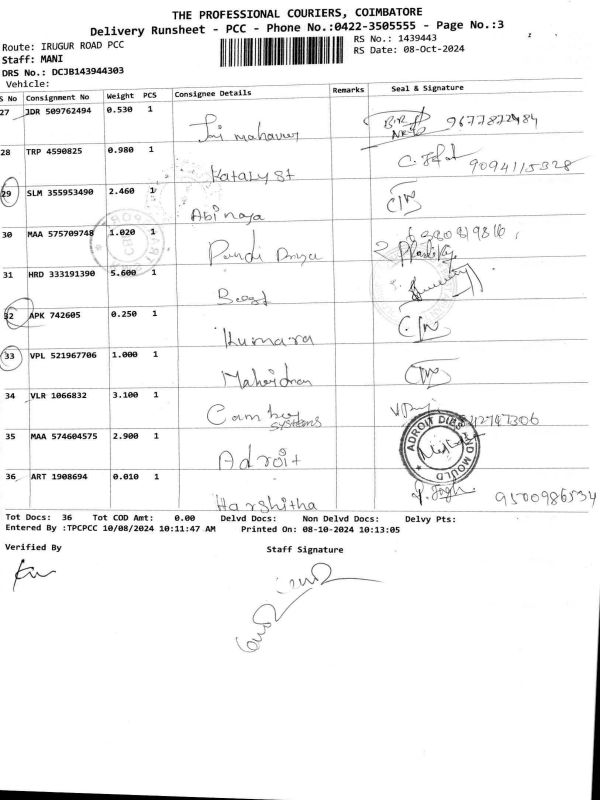 THE PROFESSIONAL COURIERS, COIMBATORE
Delivery Runsheet - PCC - Phone No.:0422-3505555 - Page No.:3
Route: IRUGUR ROAD PCC
RS No.: 1439443
Staff: MANI
RS Date: 08-Oct-2024
DRS No.: DCJB143944303
Vehicle:
S No Consignment No Weight PCS Consignee Details Remarks Seal & Signature
27 JDR 509762494 0.530 1 Jai mahaveer
28 TRP 4590825 0.980 1 Katalyst
29 SLM 355953490 2.460 1 Abinaya
30 MAA 575709748 1.020 1 Pandi
31 HRD 333191390 5.600 1
32 APK 742605 0.250 1 Kumara
33 VPL 521967706 1.000 1
34 VLR 1066832 3.100 1 systems
35 MAA 574604575 2.900 1 Adroit ADROIT DIES AND MOULD
36 ART 1908694 0.010 1 Harshitha 9500986534
Tot Docs: 36 Tot COD Amt: 0.00 Delvd Docs: Non Delvd Docs: Delvy Pts:
Entered By :TPCPCC 10/08/2024 10:11:47 AM Printed On: 08-10-2024 10:13:05
Verified By
Staff Signature